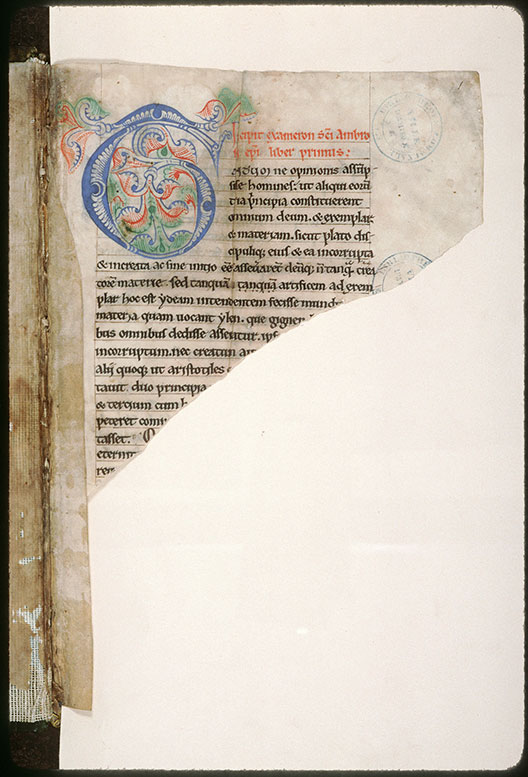 Incipit exameron sc̄i Ambro
sii ep̄i liber primus:
TANTŨ ne opinionis assũp
sisse homines. ut aliqui eorũ
tria p̃ncipia constituerent
omnium. deum. & exemplar
& materiam. sicut plato dis
cipuliq; eius & ea incorrupta
& increata ac sine initio eẽ asseuerarẽt. deũq; n̄ tanq̃ crea
torẽ materie. sed tanquã artificem ad exem
plar hoc est ydeam intendentem fecisse mundũ
materia. quam uocant ylen. que gignen
bus omnibus dedisse asseritur. ipsũ
incorruptum. nec creatum aut
alij quoq; ut aristotiles
tauit. duo principia
& tercium cum h
peteret com
tasset.
eternit